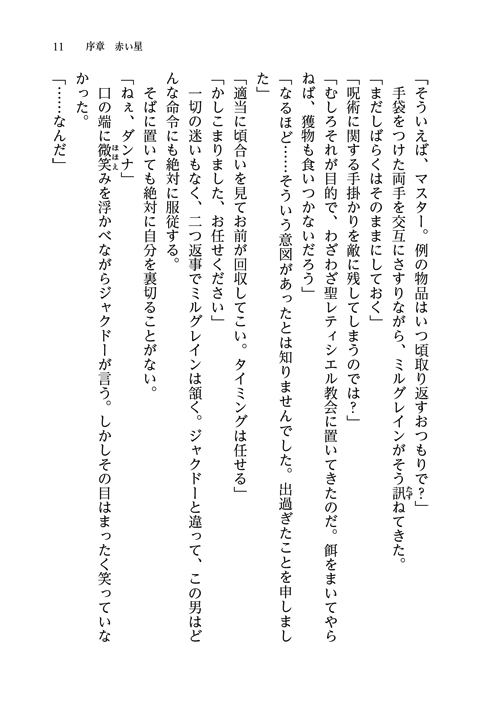 11　序章　赤い星
「そういえば、マスター。例の物品はいつ頃取り返すおつもりで？」
　手袋をつけた両手を交互にさすりながら、ミルグレインがそう訊ねてきた。
「まだしばらくはそのままにしておく」
「呪術に関する手掛かりを敵に残してしまうのでは？」
「むしろそれが目的で、わざわざ聖レティシエル教会に置いてきたのだ。餌をまいてやら
ねば、獲物も食いつかないだろう」
「なるほど……そういう意図があったとは知りませんでした。出過ぎたことを申しまし
た」
「適当に頃合いを見てお前が回収してこい。タイミングは任せる」
「かしこまりました、お任せください」
　一切の迷いもなく、二つ返事でミルグレインは頷く。ジャクドーと違って、この男はど
んな命令にも絶対に服従する。
　そばに置いても絶対に自分を裏切ることがない。
「ねぇ、ダンナ」
　口の端に微笑みを浮かべながらジャクドーが言う。しかしその目はまったく笑っていな
かった。
「……なんだ」